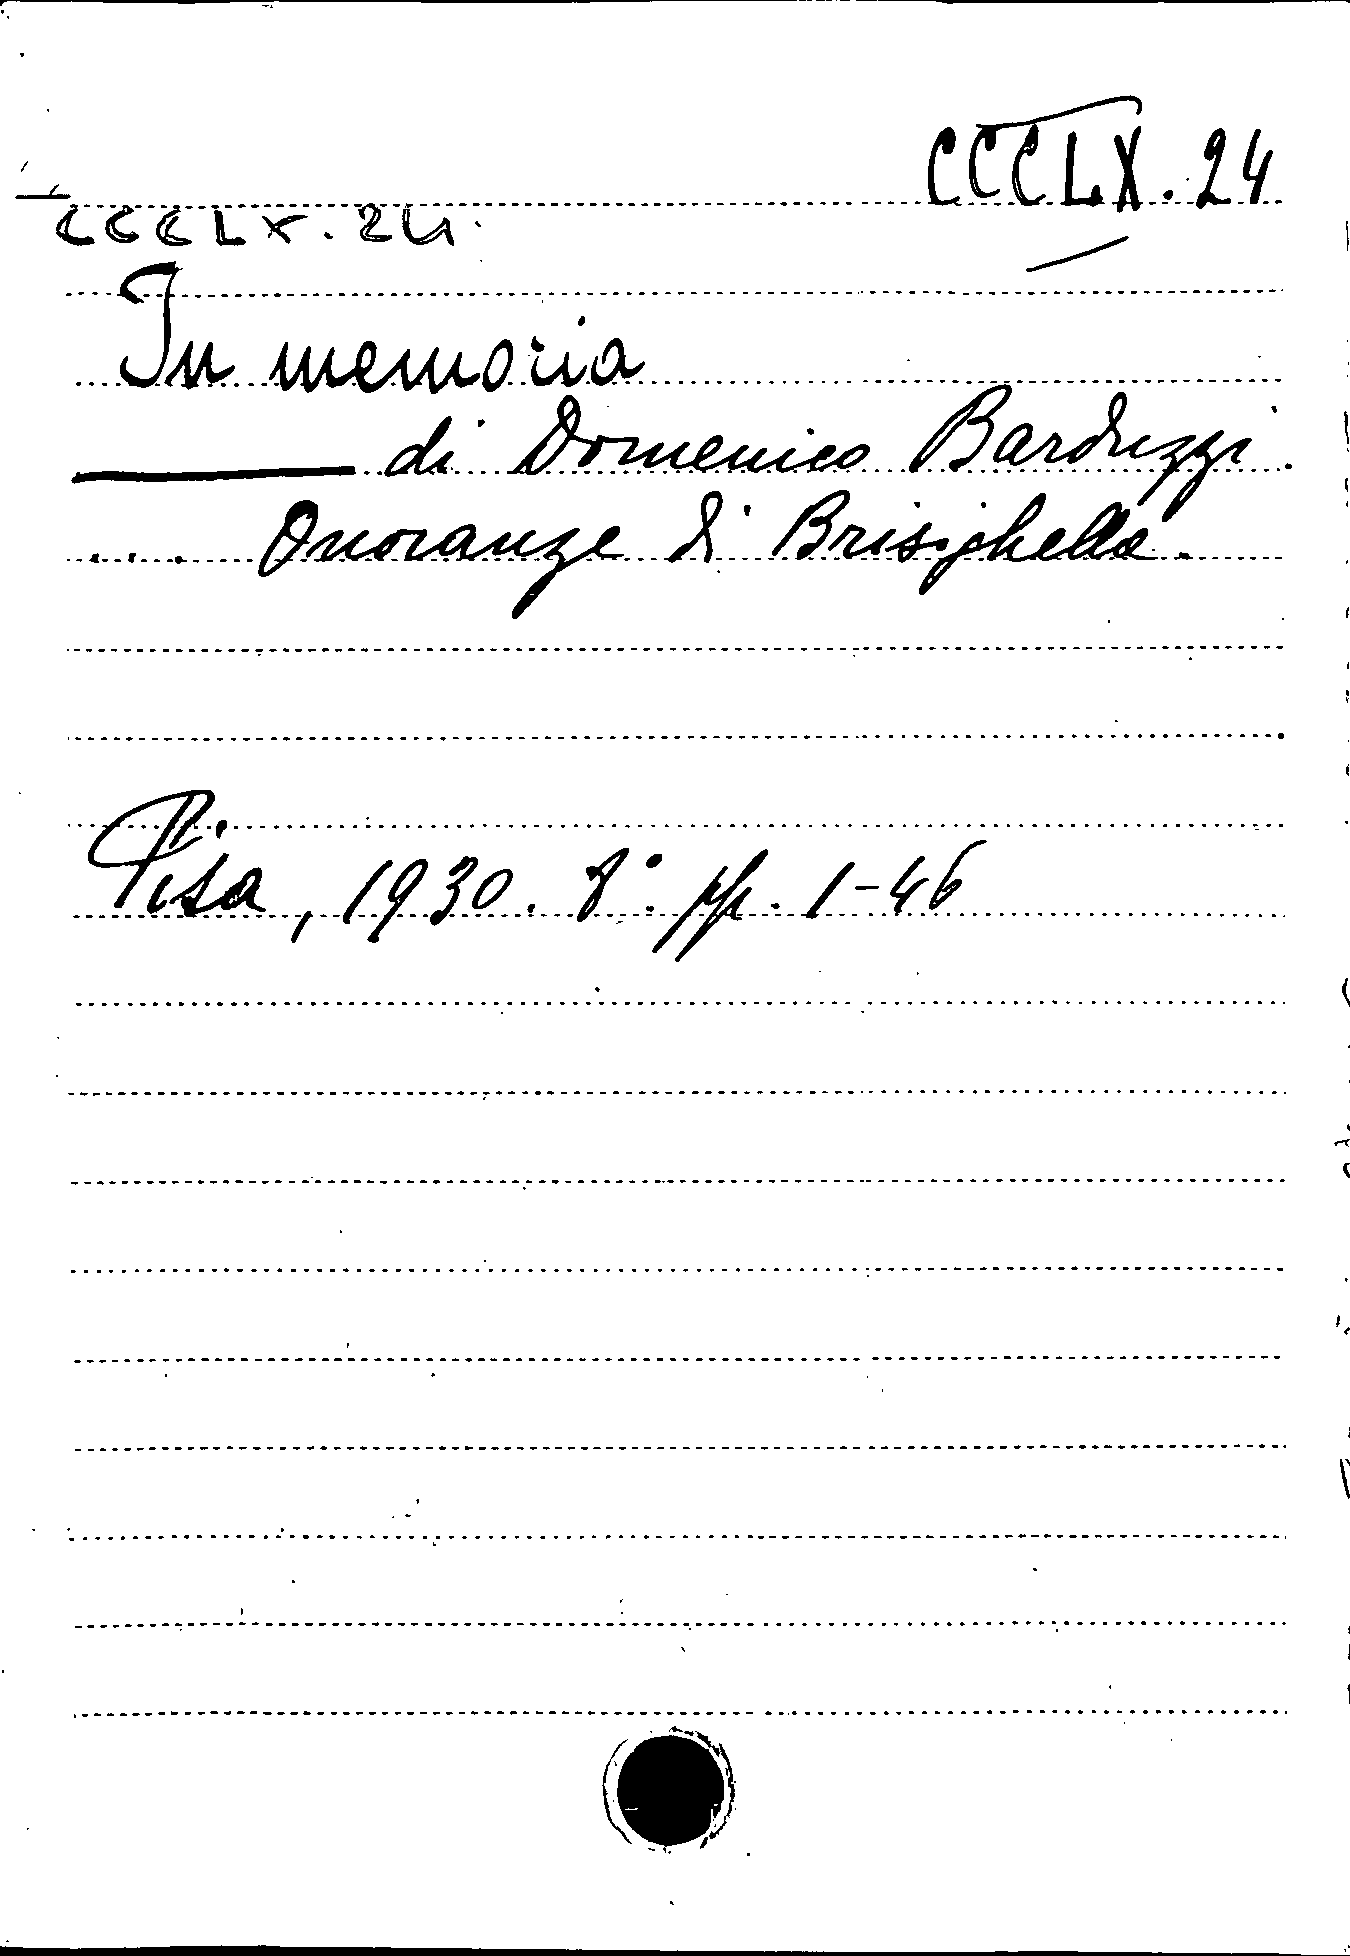 CCCLX.24
CCCLX.24.
In memoria
di Domenico Barduzzi.
... Onoranze di Brisighella.
Pisa, 1930. 8°. pp. 1-46